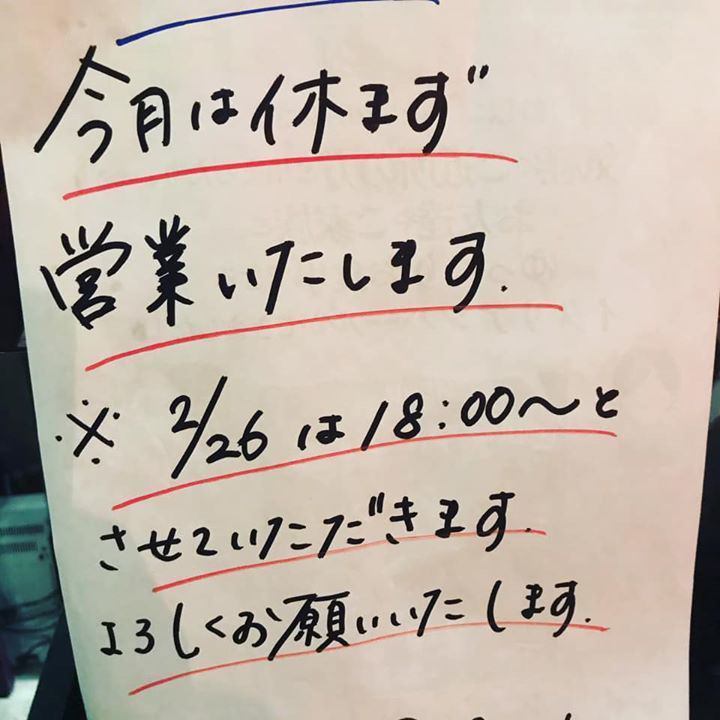 今月は休まず
営業いたします.
※ 2/26 は 18:00〜と
させていただきます.
よろしくお願いいたします.